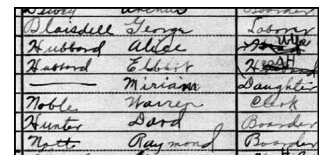 Dewey Boarder
Blaisdell George Laborer
Hubbard Alice Wife
Hubbard Elbbirt Head
—— Miriam Daughter
Noble Warren Clerk
Hunter Dard Boarder
Nott Raymond Boarder